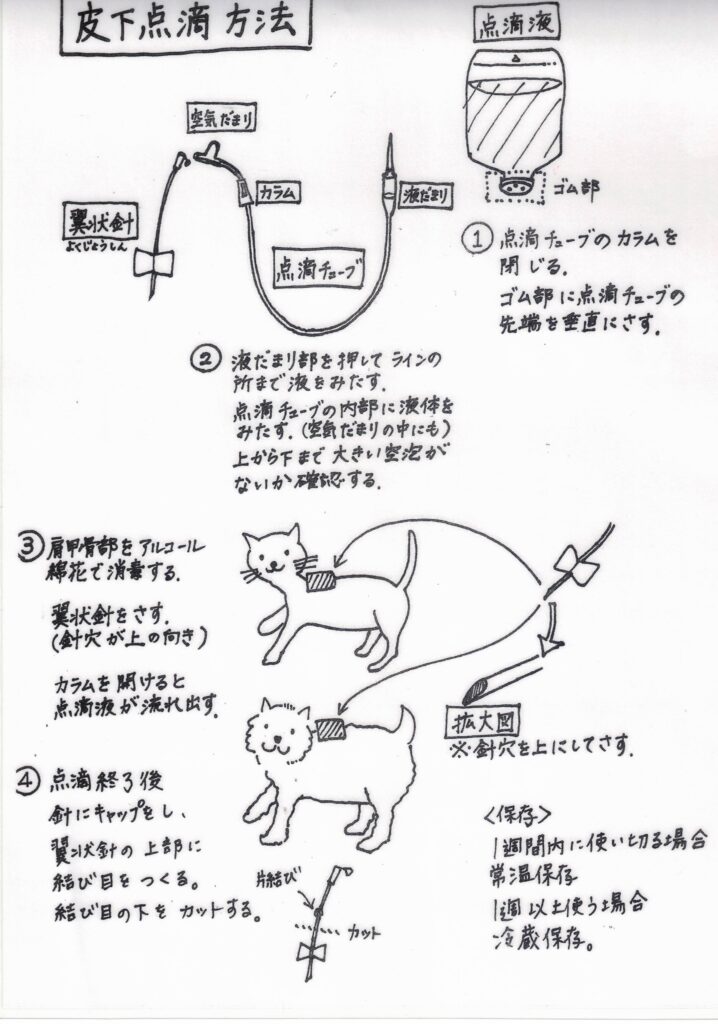 皮下点滴方法
点滴液
空気だまり
カラム
液だまり
ゴム部
翼状針
よくじょうしん
点滴チューブ
① 点滴チューブのカラムを
閉じる.
ゴム部に点滴チューブの
先端を垂直にさす.
② 液だまり部を押してラインの
所まで液をみたす.
点滴チューブの内部に液体を
みたす.(空気だまりの中にも)
上から下まで大きい空泡が
ないか確認する.
③ 肩甲骨部をアルコール
綿花で消毒する.
翼状針をさす.
(針穴が上の向き)
カラムを開けると
点滴液が流れ出す.
拡大図
※針穴を上にしてさす.
④ 点滴終了後
針にキャップをし、
翼状針の上部に
結び目をつくる。
結び目の下をカットする。
片結び
カット
<保存>
1週間内に使い切る場合
常温保存
1週以上使う場合
冷蔵保存。